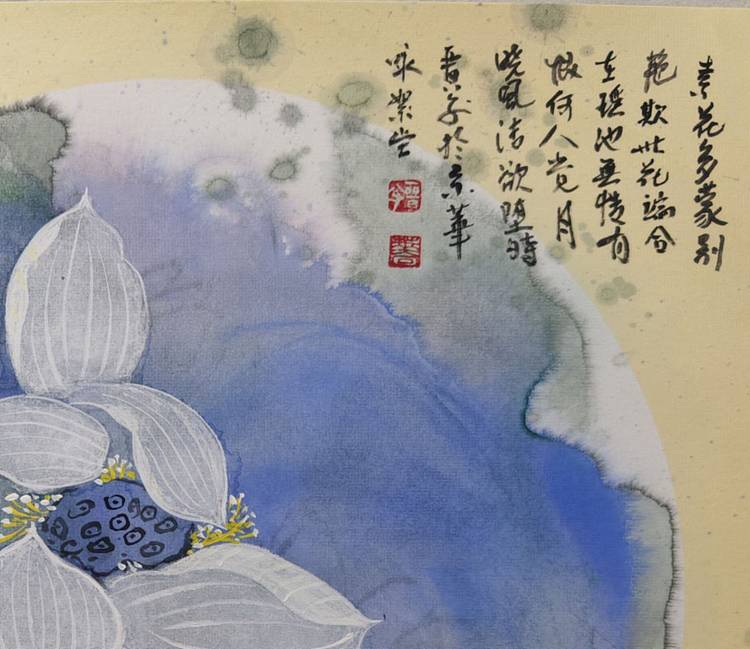 素花多蒙别
艳欺此花端合
在瑶池無情有
恨何人觉月
晓风清欲堕時
於京華